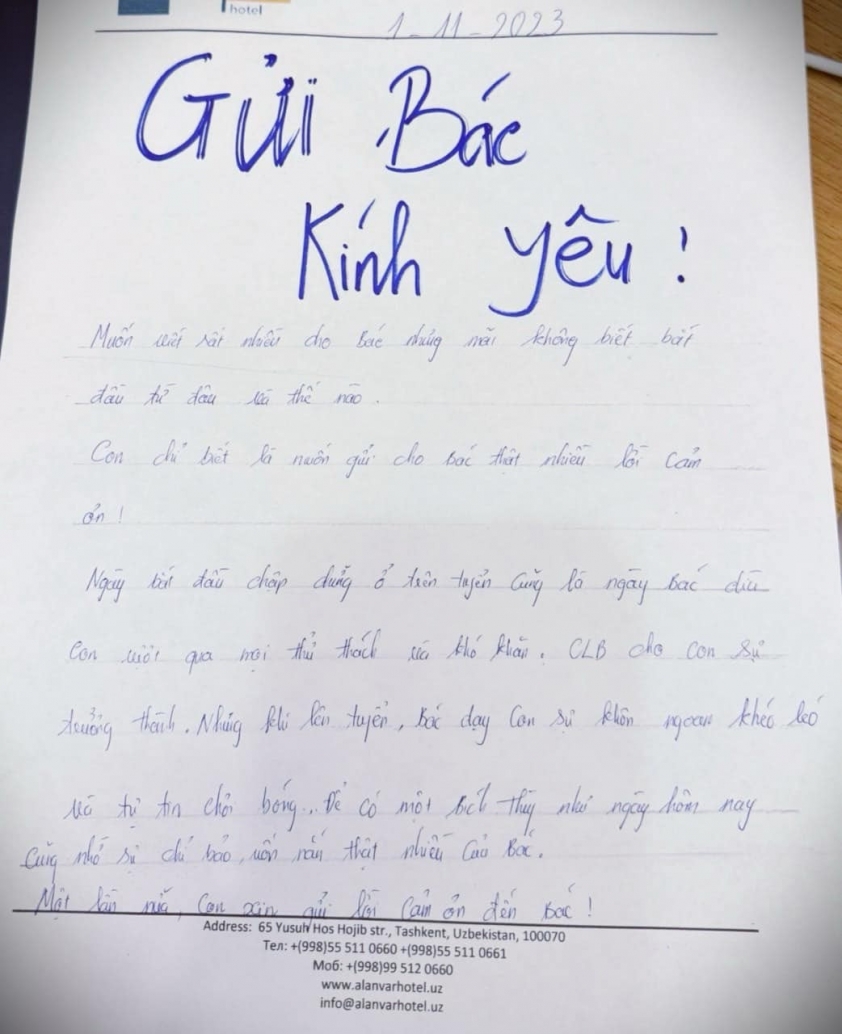 hotel
1-11-2023
Gửi Bác
Kính yêu !
Muốn viết rất nhiều cho Bác nhưng mãi không biết bắt
đầu từ đâu và thế nào .
Con chỉ biết là muốn gửi cho Bác thật nhiều lời cảm
ơn !
Ngày bắt đầu chập chững ở trên tuyển cũng là ngày Bác dìu
Con vượt qua mọi thử thách và khó khăn . CLB cho con sự
trưởng thành . Nhưng khi lên tuyển , Bác dạy Con sự khôn ngoan khéo léo
Và tự tin chơi bóng... Để có một Bích Thùy như ngày hôm nay
Cũng nhờ sự chỉ bảo , uốn nắn thật nhiều Của Bác .
Một lần nữa , Con xin gửi lời Cảm ơn đến Bác !
Address: 65 Yusuf Hos Hojib str., Tashkent, Uzbekistan, 100070
Тел: +(998)55 511 0660 +(998)55 511 0661
Моб: +(998)99 512 0660
www.alanvarhotel.uz
info@alanvarhotel.uz